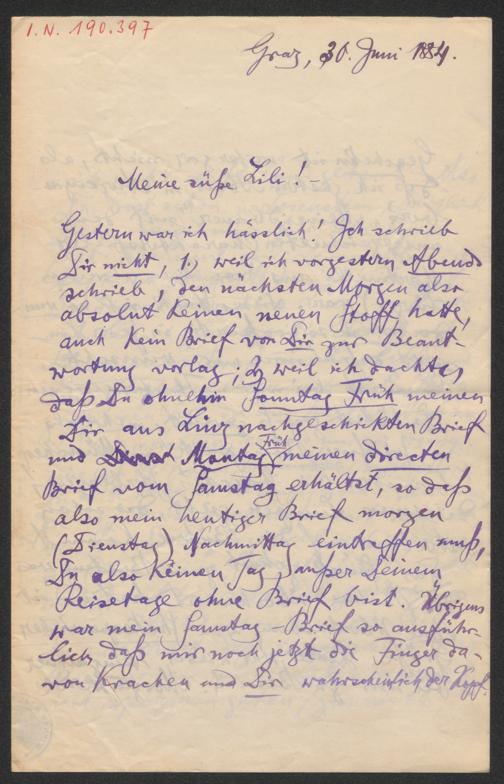 I.N. 190.397
Graz, 30. Juni 1884.
Meine süße Lili! –
Gestern war ich hässlich! Ich schrieb
Dir nicht, 1) weil ich vorgestern Abends
schrieb, den nächsten Morgen also
absolut keinen neuen Stoff hatte,
auch kein Brief von Dir zur Beant-
wortung vorlag; 2) weil ich dachte,
daß Du ohnehin Sonntag Früh meinen
Dir aus Linz nachgeschickten Brief
und Montag Früh meinen directen
Brief vom Samstag erhältst, so daß
also mein heutiger Brief morgen
(Dienstag) Nachmittag eintreffen muß,
Du also keinen Tag, außer Deinem
Reisetage ohne Brief bist. Übrigens
war mein Samstag-Brief so ausführ-
lich, daß mir noch jetzt die Finger da-
von krachen und Dir wahrscheinlich der Kopf.